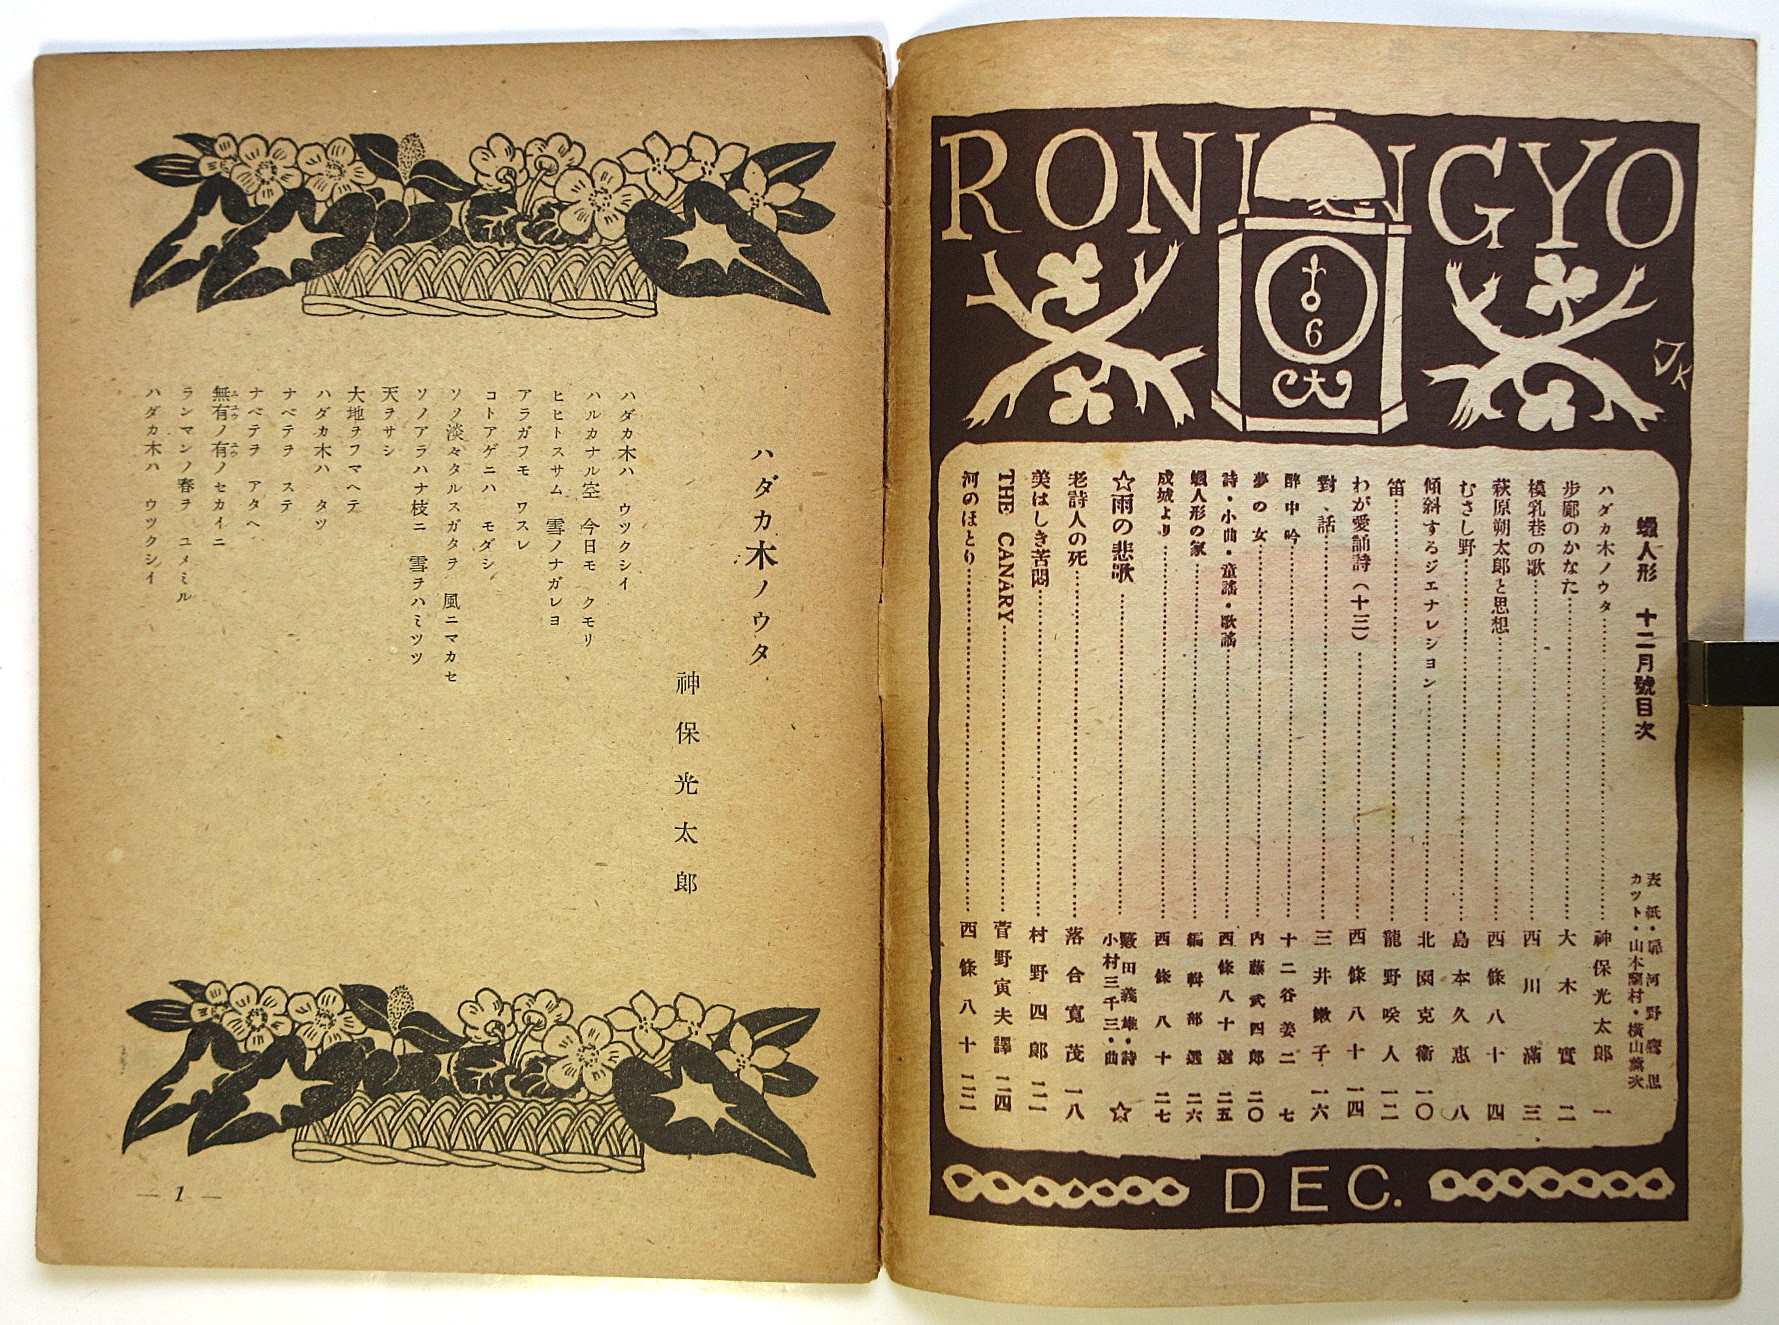 RONINGYO
6
JK
蠟人形 十二月號目次
表紙・扉 河野鷹思
カツト・山本蘭村・横山薫次
ハダカ木ノウタ……神保光太郎 一
步廊のかなた……大木實 二
模乳巷の歌……西川滿 三
萩原朔太郎と思想……西條八十 四
むさし野……島本久惠 八
傾斜するジエナレシヨン……北園克衞 一〇
笛……龍野咲人 一二
わが愛誦詩(十三)……西條八十 一四
對話……三井鏾子 一六
醉中吟……十二谷姜二 七
夢の女……内藤武四郎 二〇
詩・小曲・童謠・歌謠……西條八十選 二五
蠟人形の家……編輯部選 二六
成城より……西條八十 二七
☆雨の悲歌……藪田義雄・詩 小村三千三・曲 ☆
老詩人の死……落合寬茂 一八
美はしき苦悶……村野四郎 二一
THE CANARY……菅野寅夫譯 二四
河のほとり……西條八十 二二
DEC.
ハダカ木ノウタ
神保光太郎
ハダカ木ハ ウツクシイ
ハルカナル空 今日モ クモリ
ヒヒトスサム 雪ノナガレヨ
アラガフモ ワスレ
コトアゲニハ モダシ
ソノ淡々タルスガタヲ 風ニマカセ
ソノアラハナ枝ニ 雪ヲハミツツ
天ヲサシ
大地ヲフマヘテ
ハダカ木ハ タツ
ナベテヲ ステ
ナベテヲ アタヘ
無有ノ有ノセカイニ
ランマンノ春ヲ ユメミル
ハダカ木ハ ウツクシイ
— 1 —